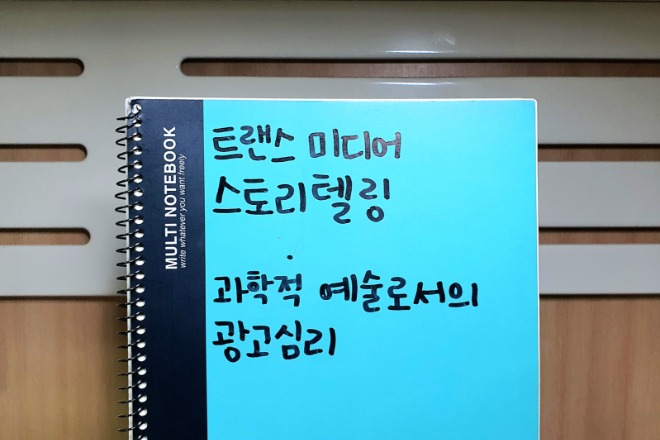 MULTI NOTEBOOK
write whatever you want freely
트랜스 미디어
스토리텔링
과학적 예술로서의
광고심리